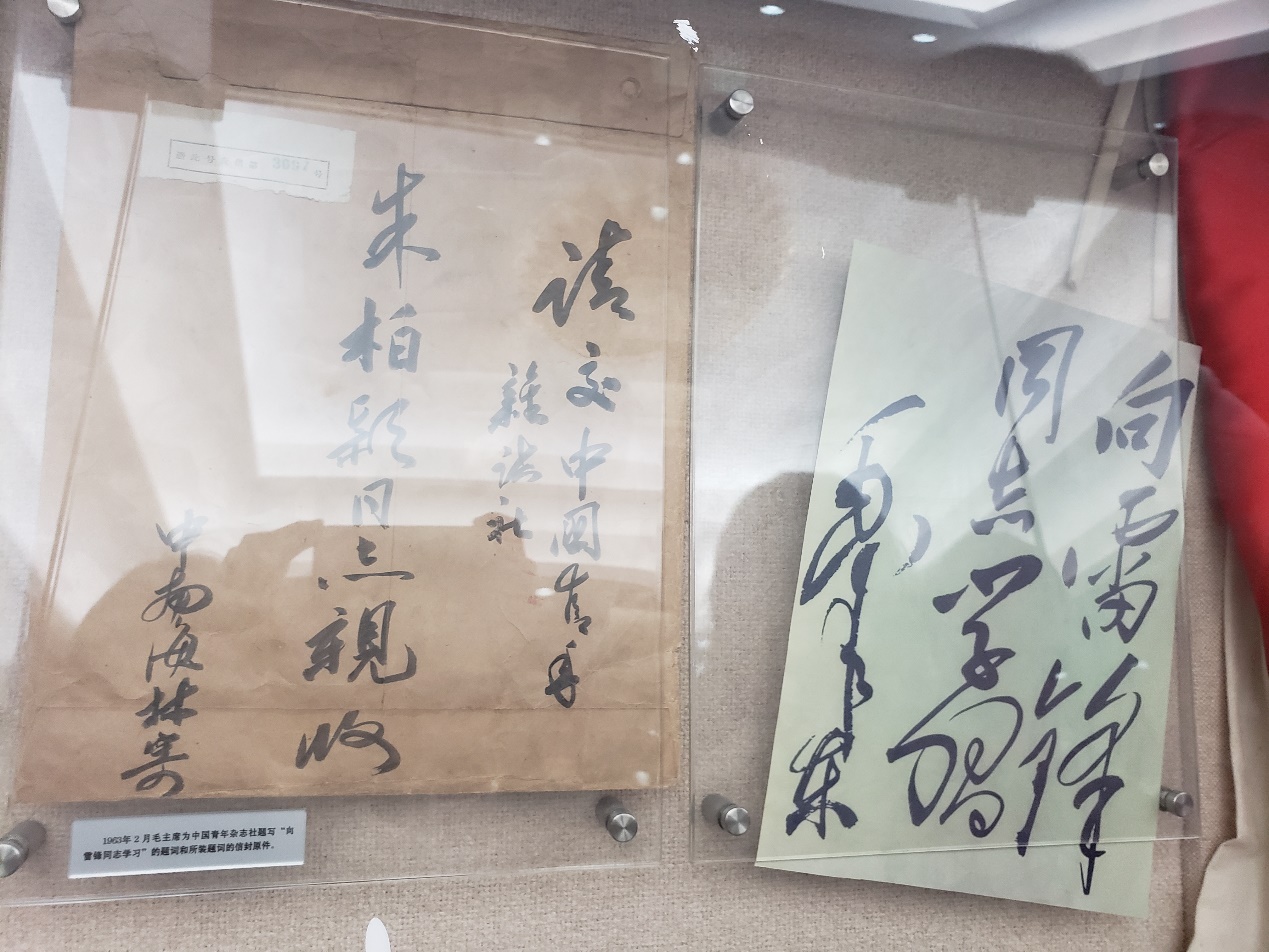 请交中國青年
雜誌社
朱柏颖同志親收
中南海林寄
向雷锋
同志学习
毛泽东
1963年2月毛主席为中国青年杂志社题写“向
雷锋同志学习”的题词和所装题词的信封原件。